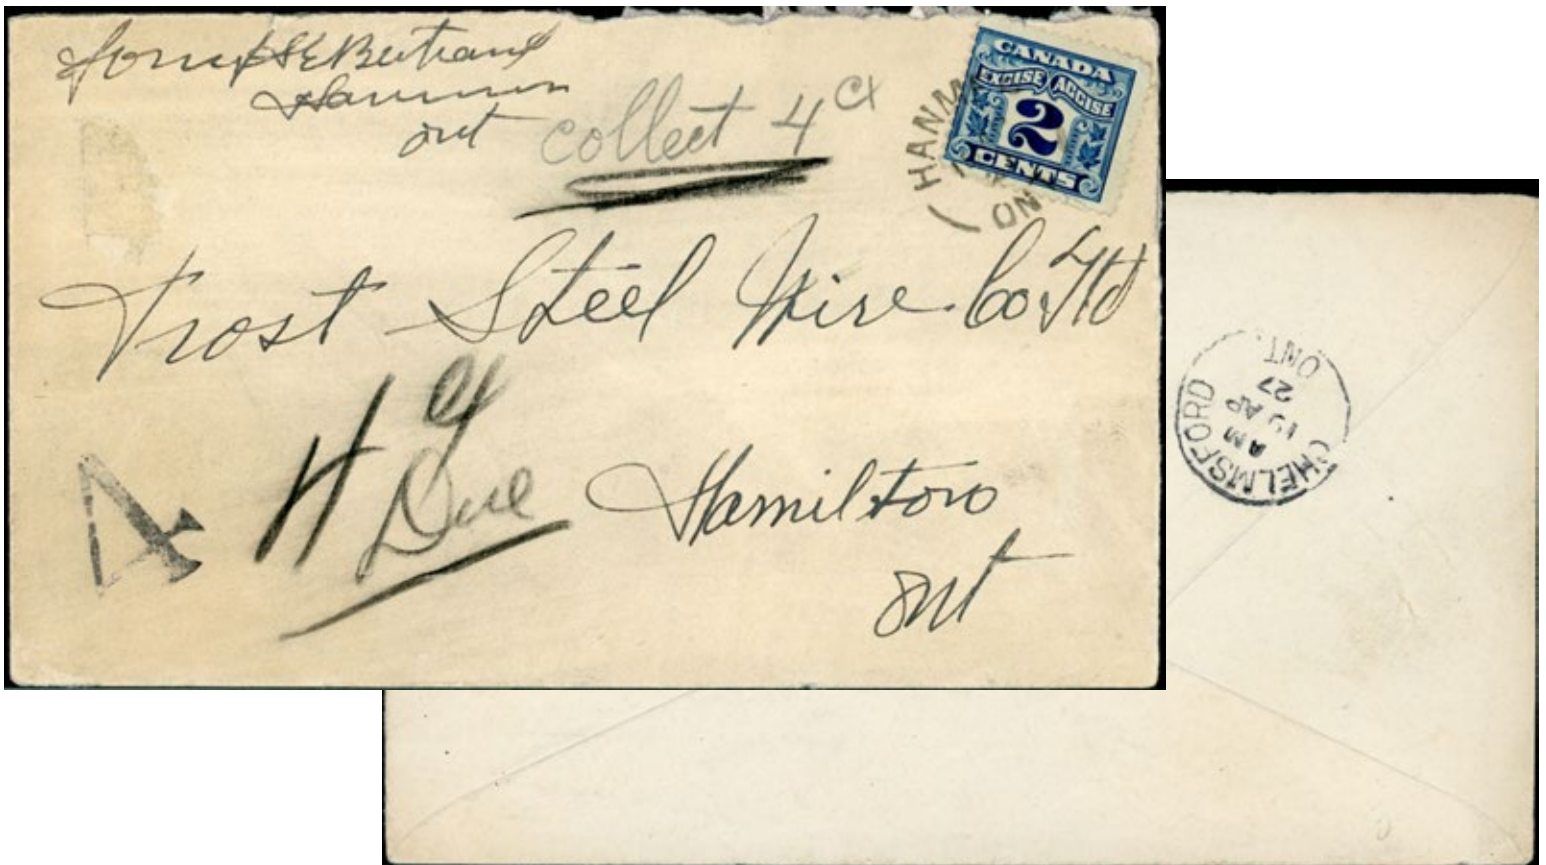 Bertrand
Hanmer
Ont
collect 4 ct
CANADA
EXCISE ACCISE
2
CENTS
HANM
ON
Frost Steel Wire Co Ltd
4
4 ¢
Due
Hamilton
Ont
CHELMSFORD
AM
19 AP
27
ONT.